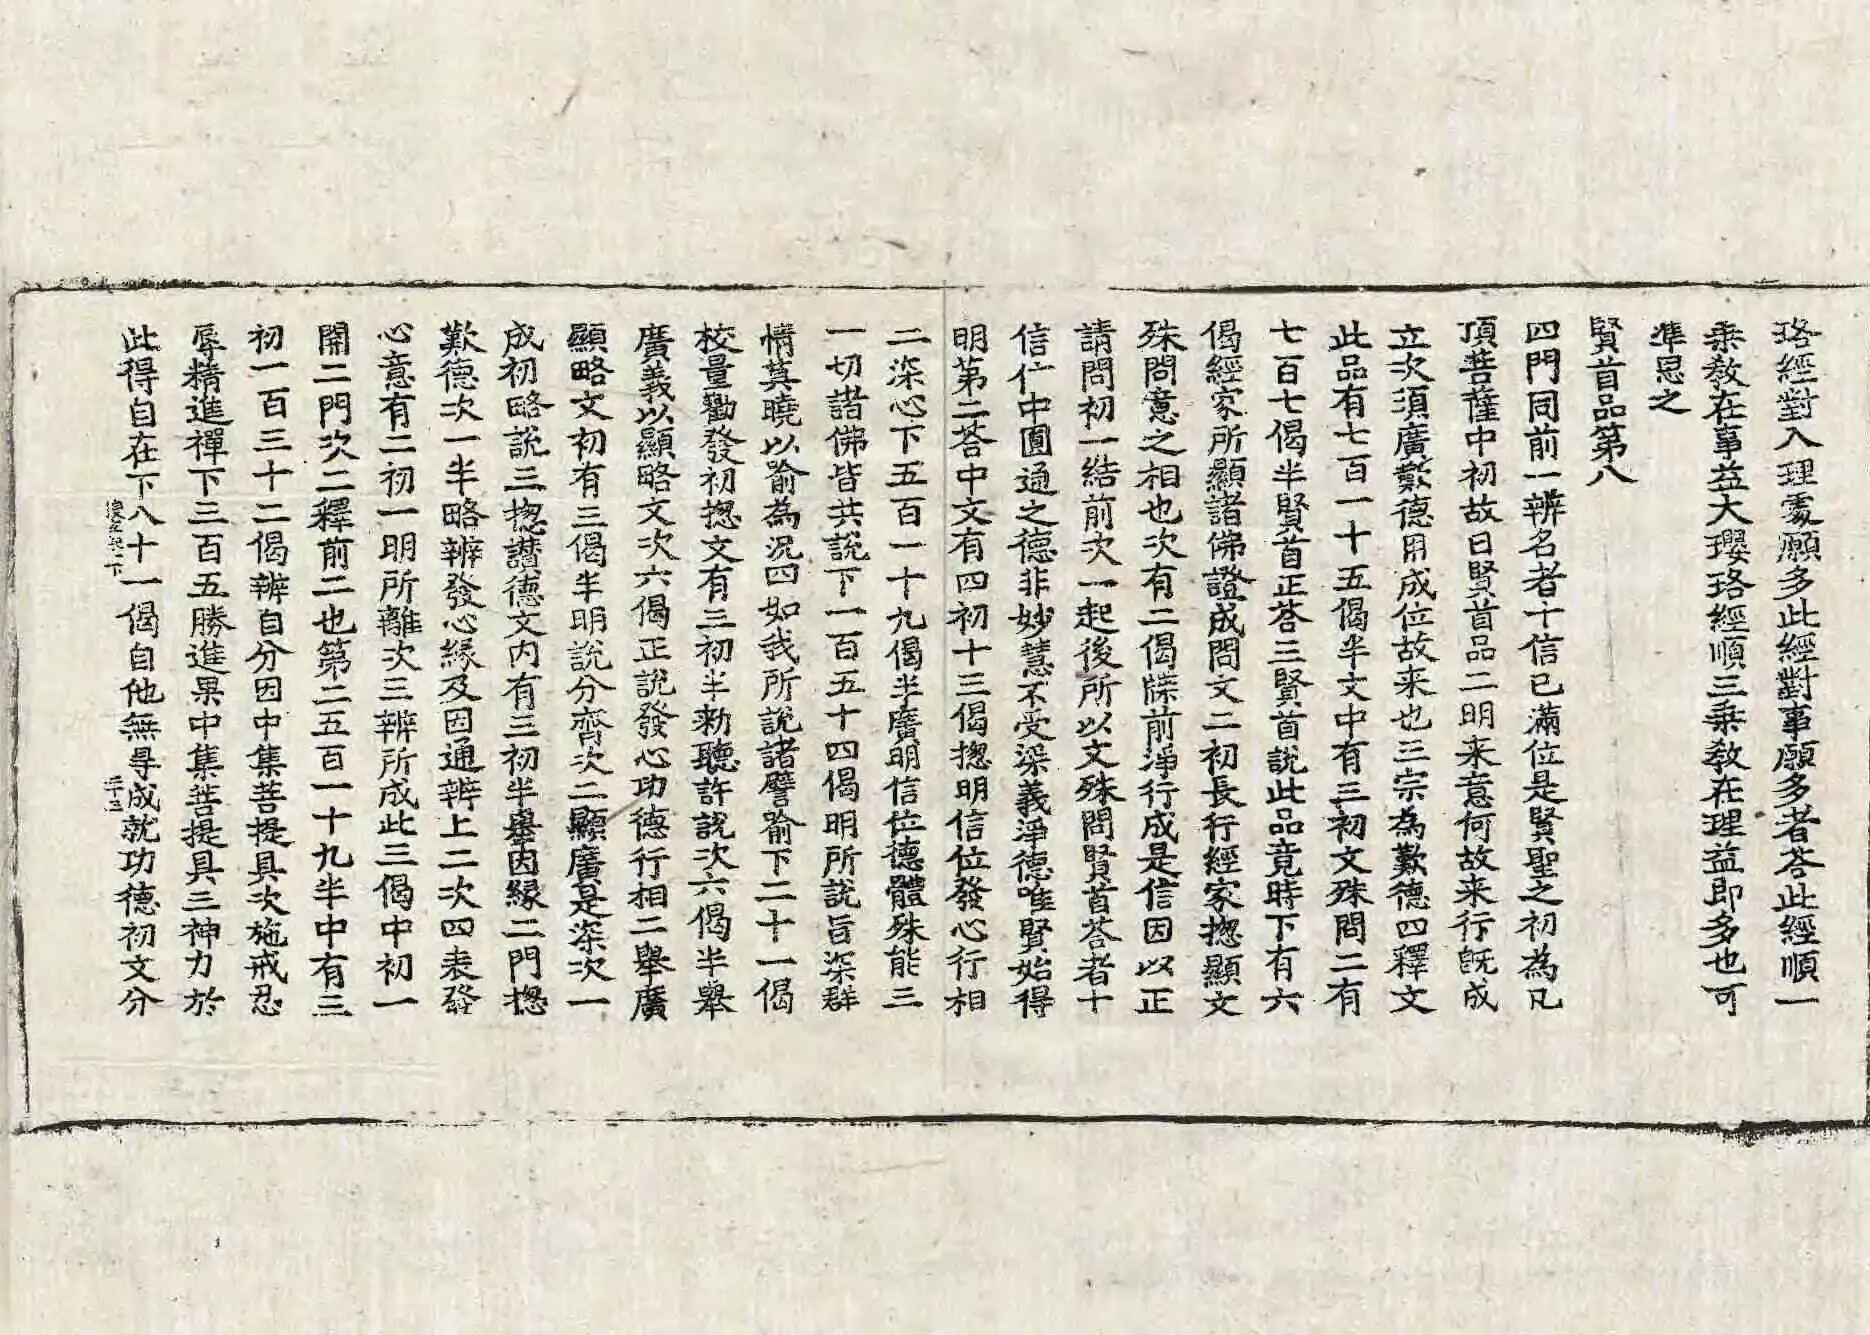 珞經對入理處願多此經對事願多者荅此經順一
乗敎在事益大瓔珞經順三乗敎在理益即多也可
准思之
賢首品第八
四門同前一辨名者十信已滿位是賢聖之初為凡
頂菩薩中初故曰賢首品二明来意何故来行旣成
立次須廣歎德用成位故来也三宗為歎德四釋文
此品有七百一十五偈半文中有三初文殊問二有
七百七偈半賢首正荅三賢首說此品竟時下有六
偈經家所顯諸佛證成問文二初長行經家揔顯文
殊問意之相也次有二偈牒前淨行成是信因以正
請問初一結前次一起後所以文殊問賢首荅者十
信仁中圓通之德非妙慧不受深義淨德唯賢始得
明第二荅中文有四初十三偈揔明信位發心行相
二深心下五百一十九偈半廣明信位德體殊能三
一切諸佛皆共說下一百五十四偈明所說旨深群
情莫曉以喻為況四如我所說諸譬喻下二十一偈
校量勸發初揔文有三初半勑聽許說次六偈半舉
廣義以顯略文次六偈正說發心功德行相二舉廣
顯略文初有三偈半明說分齊次二顯廣是深次一
成初略說三揔讃德文内有三初半舉因縁二門揔
歎德次一半略辨發心縁及因通辨上二次四表發
心意有二初一明所離次三辨所成此三偈中初一
開二門次二釋前二也第二五百一十九半中有三
初一百三十二偈辨自分因中集菩提具次施戒忍
辱精進禪下三百五勝進果中集菩提具三神力於
此得自在下八十一偈自他無㝵成就功德初文分